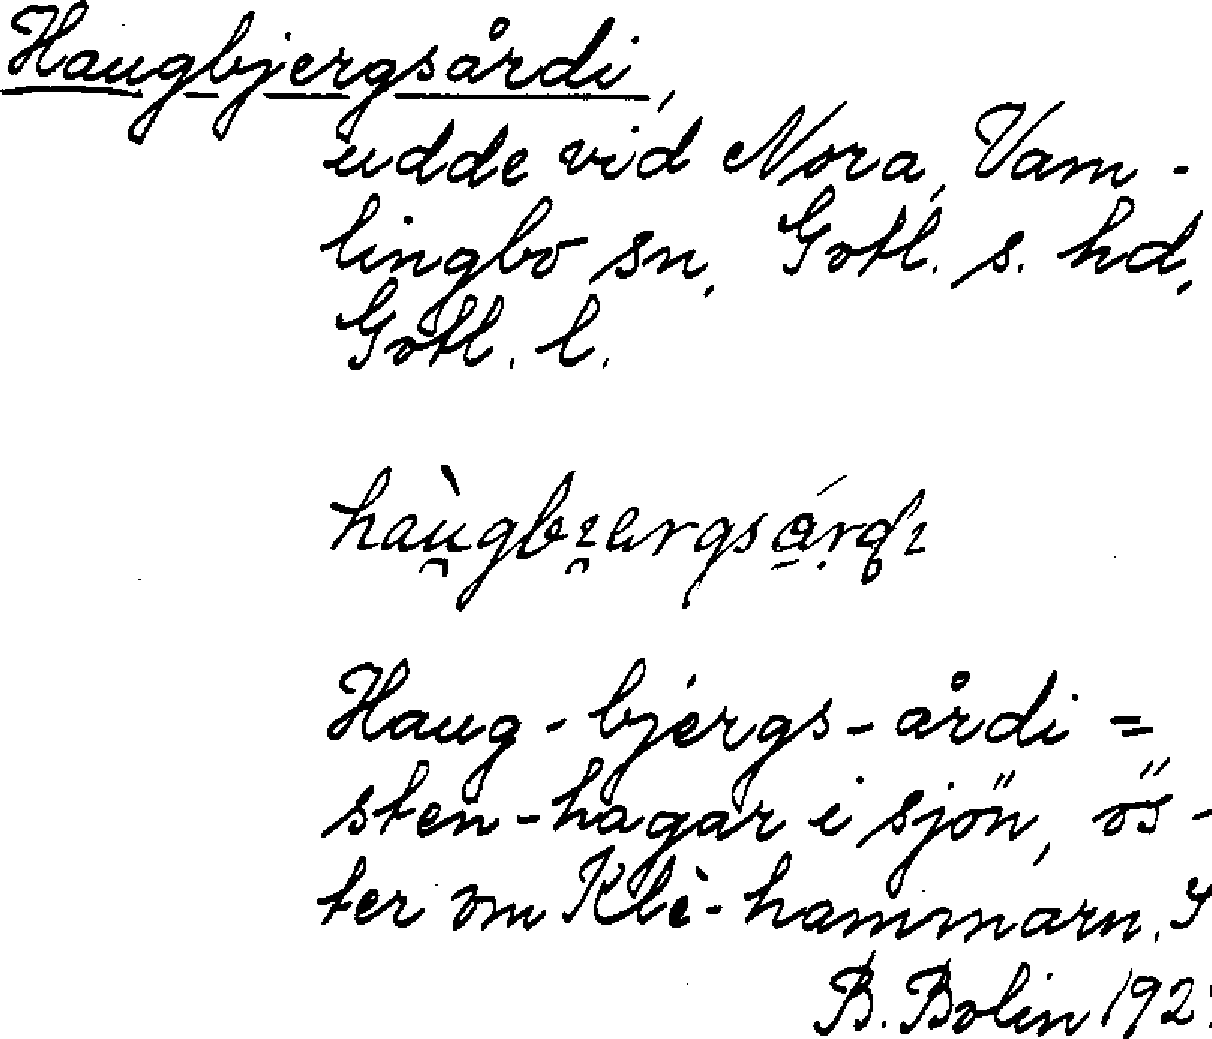 Haugbjergsårdi,
udde vid Nora, Vam-
lingbo sn, Gotl. s. hd,
Gotl. l.
Haug-bjergs-årdi =
sten-hagar i sjön, ös-
ter om Klè-hammarn.
B. Bolin 192